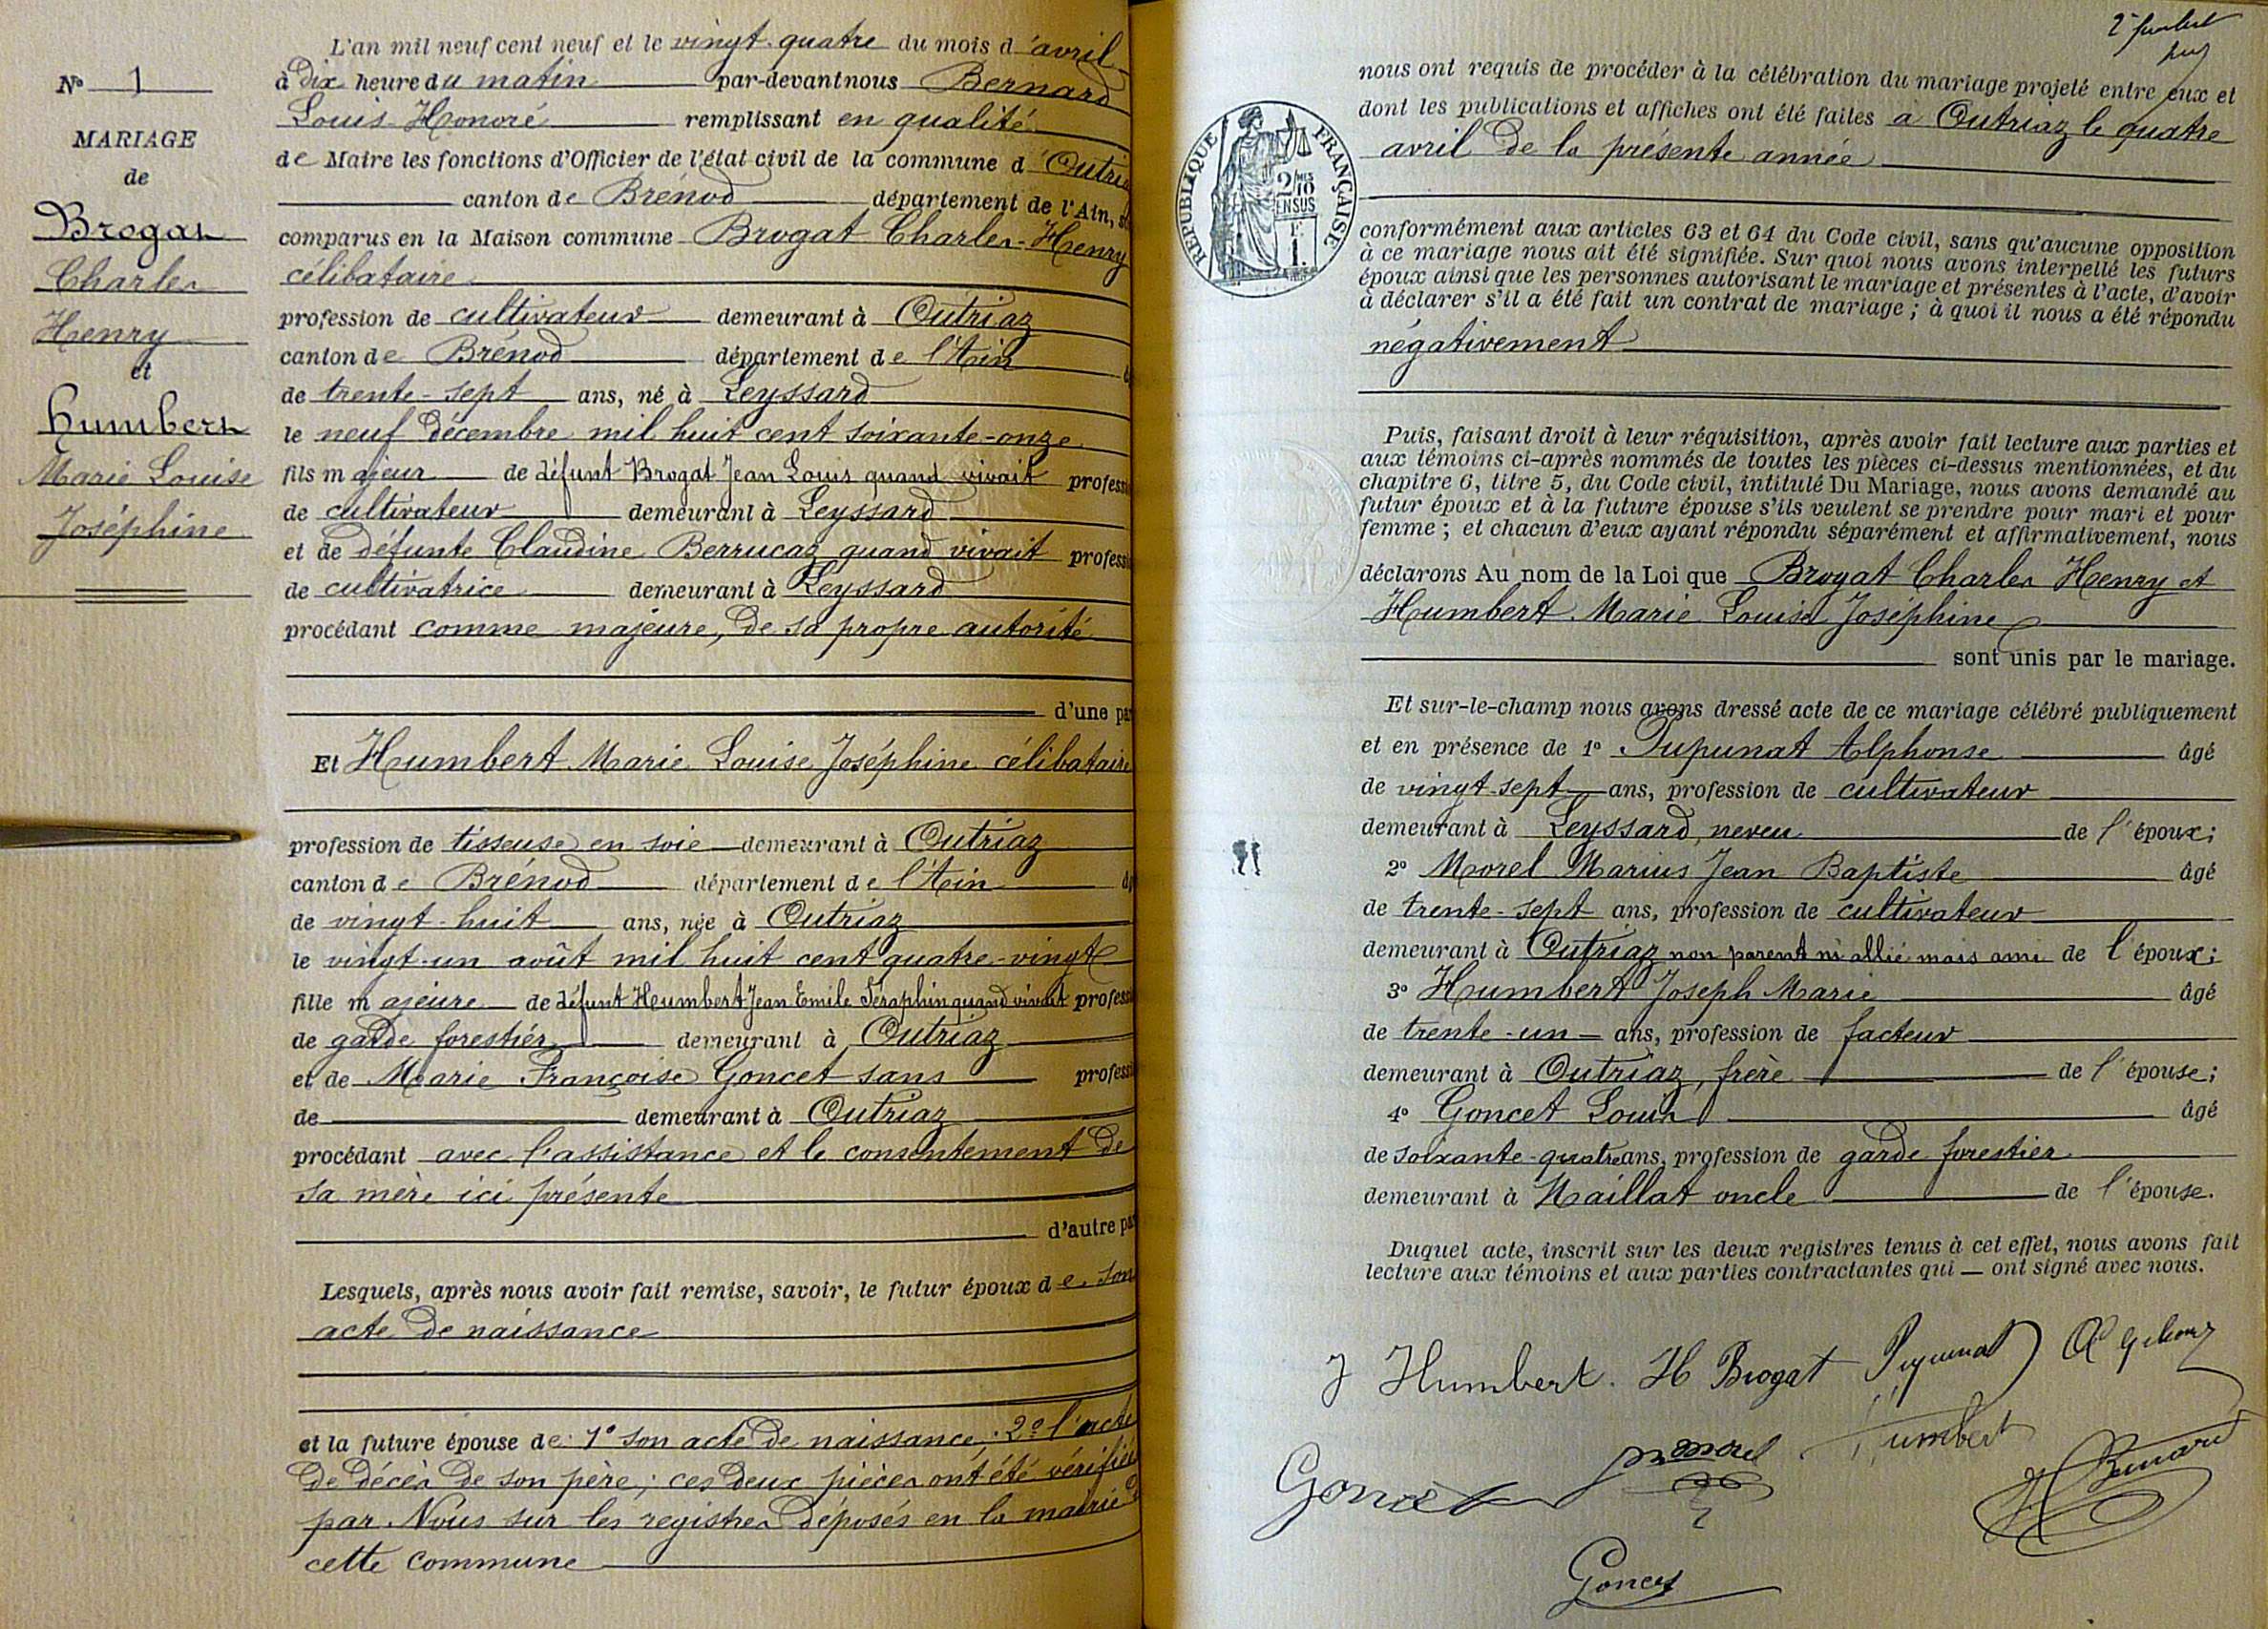 N° 1
MARIAGE
de
Brogat
Charles
Henry
et
Humbert
Marie Louise
Joséphine
L'an mil neuf cent neuf et le vingt-quatre du mois d'avril
à Dix heure du matin par-devant nous Bernard
Louis-Honoré remplissant en qualité
de Maire les fonctions d'Officier de l'état civil de la commune d'Outria
canton de Brénod département de l'Ain, s
comparus en la Maison commune Brogat Charles-Henry
célibataire
profession de cultivateur demeurant à Outriaz
canton de Brénod département de l'Ain
de trente-sept ans, né à Leyssard
le neuf Décembre mil huit cent soixante-onze
fils majeur de défunt Brogat Jean Louis quand vivait professi
de cultivateur demeurant à Leyssard
et de défunte Claudine Berrucaz quand vivait professi
de cultivatrice demeurant à Leyssard
procédant comme majeure, de sa propre autorité
d'une par
Et Humbert Marie Louise Joséphine célibataire
profession de tisseuse en soie demeurant à Outriaz
canton de Brénod département de l'Ain
de vingt-huit ans, née à Outriaz
le vingt-un août mil huit cent quatre-vingt
fille majeure de défunt Humbert Jean Emile Séraphin quand vivait professi
de garde forestier demeurant à Outriaz
et de Marie Françoise Goncet sans professi
de demeurant à Outriaz
procédant avec l'assistance et le consentement de
sa mère ici présente
d'autre par
Lesquels, après nous avoir fait remise, savoir, le futur époux de son
acte de naissance
et la future épouse de: 1° son acte de naissance; 2° l'acte
de décès de son père; ces deux pièces ont été vérifiées
par Nous sur les registres déposés en la mairie d
cette commune
nous ont requis de procéder à la célébration du mariage projeté entre eux et
dont les publications et affiches ont été faites à Outriaz le quatre
avril de la présente année
RÉPUBLIQUE FRANÇAISE
2/10 MES
EN SUS
1 F.
conformément aux articles 63 et 64 du Code civil, sans qu'aucune opposition
à ce mariage nous ait été signifiée. Sur quoi nous avons interpellé les futurs
époux ainsi que les personnes autorisant le mariage et présentes à l'acte, d'avoir
à déclarer s'il a été fait un contrat de mariage; à quoi il nous a été répondu
négativement
Puis, faisant droit à leur réquisition, après avoir fait lecture aux parties et
aux témoins ci-après nommés de toutes les pièces ci-dessus mentionnées, et du
chapitre 6, titre 5, du Code civil, intitulé Du Mariage, nous avons demandé au
futur époux et à la future épouse s'ils veulent se prendre pour mari et pour
femme; et chacun d'eux ayant répondu séparément et affirmativement, nous
déclarons Au nom de la Loi que Brogat Charles Henry et
Humbert Marie Louise Joséphine
sont unis par le mariage.
Et sur-le-champ nous avons dressé acte de ce mariage célébré publiquement
et en présence de 1° Pupunat Alphonse âgé
de vingt-sept ans, profession de cultivateur
demeurant à Leyssard, neveu de l'époux;
2° Morel Marius Jean Baptiste âgé
de trente-sept ans, profession de cultivateur
demeurant à Outriaz non parent ni allié mais ami de l'époux;
3° Humbert Joseph Marie âgé
de trente-un ans, profession de facteur
demeurant à Outriaz, frère de l'épouse;
4° Goncet Louis âgé
de soixante-quatre ans, profession de garde forestier
demeurant à Maillat oncle de l'épouse.
Duquel acte, inscrit sur les deux registres tenus à cet effet, nous avons fait
lecture aux témoins et aux parties contractantes qui — ont signé avec nous.
J Humbert. H Brogat
Morel Humbert
Goncet H Bernard
Goncet